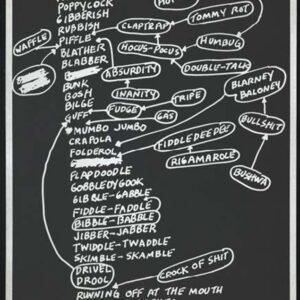 POPPYCOCK
GIBBERISH
RUBBISH
PIFFLE
BLATHER
BLABBER
BUNK
BOSH
BILGE
GUFF
MUMBO JUMBO
CRAPOLA
FOLDEROL
FLAPDOODLE
GOBBLEDYGOOK
GIBBLE-GABBLE
FIDDLE-FADDLE
BIBBLE-BABBLE
JIBBER-JABBER
TWIDDLE-TWADDLE
SKIMBLE-SKAMBLE
DRIVEL
DROOL
RUNNING OFF AT THE MOUTH
WAFFLE
CLAPTRAP
TOMMY ROT
HOCUS-POCUS
HUMBUG
DOUBLE-TALK
ABSURDITY
INANITY
FUDGE
TRIPE
GAS
BLARNEY
BALONEY
BULLSHIT
BUSHWA
FIDDLEDEEDEE
RIGAMAROLE
CROCK OF SHIT